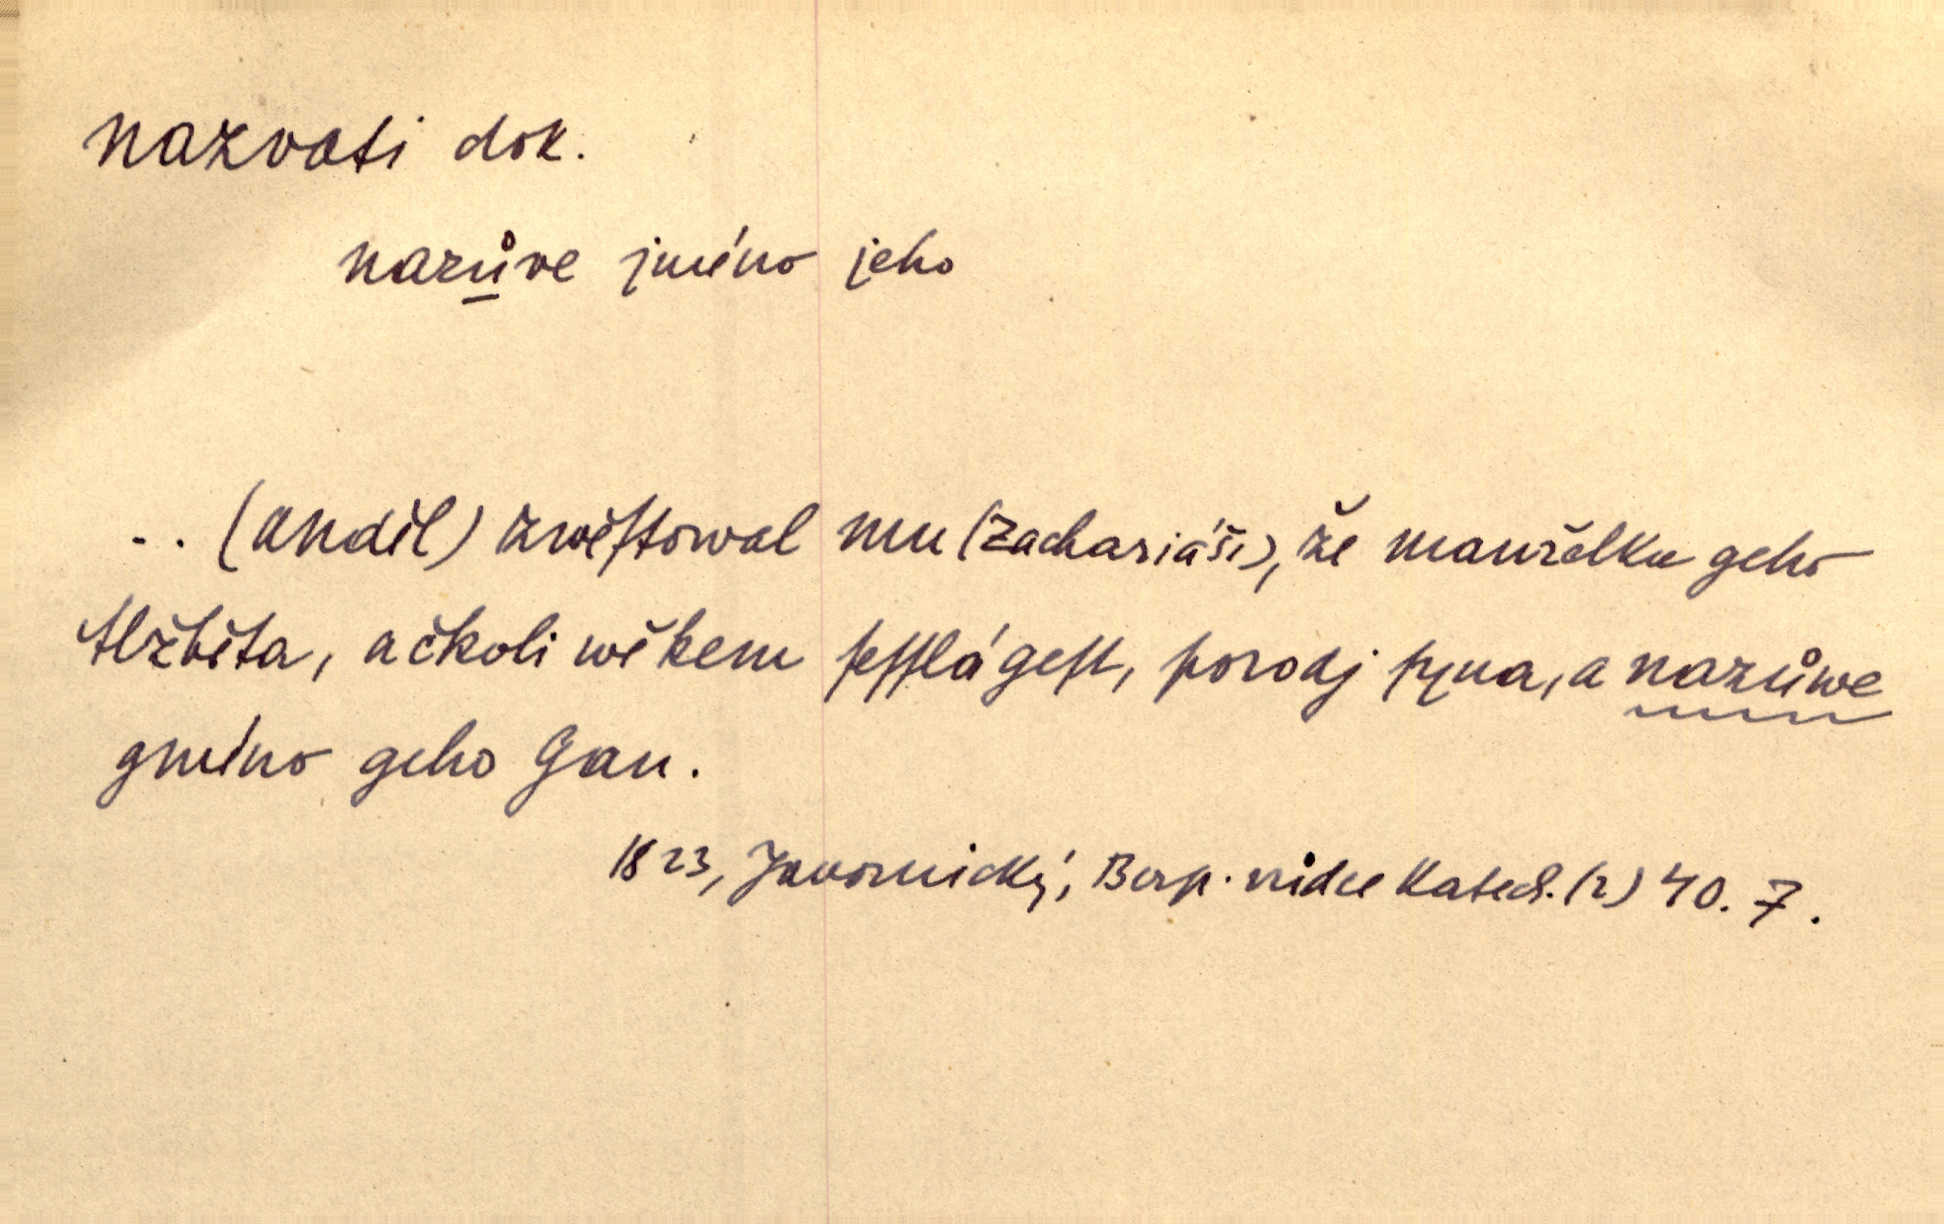 nazvati dok.
nazůve jméno jeho
.. (anděl) zwěſtowal mu (Zachariáši), že manželka geho
Alžběta, ačkoli wěkem ſeſſlá geſt, porodj ſyna, a nazůwe
gméno geho Gan.
1823, Javornický, Bezp. vůdce Katech. (2) 40. 7.